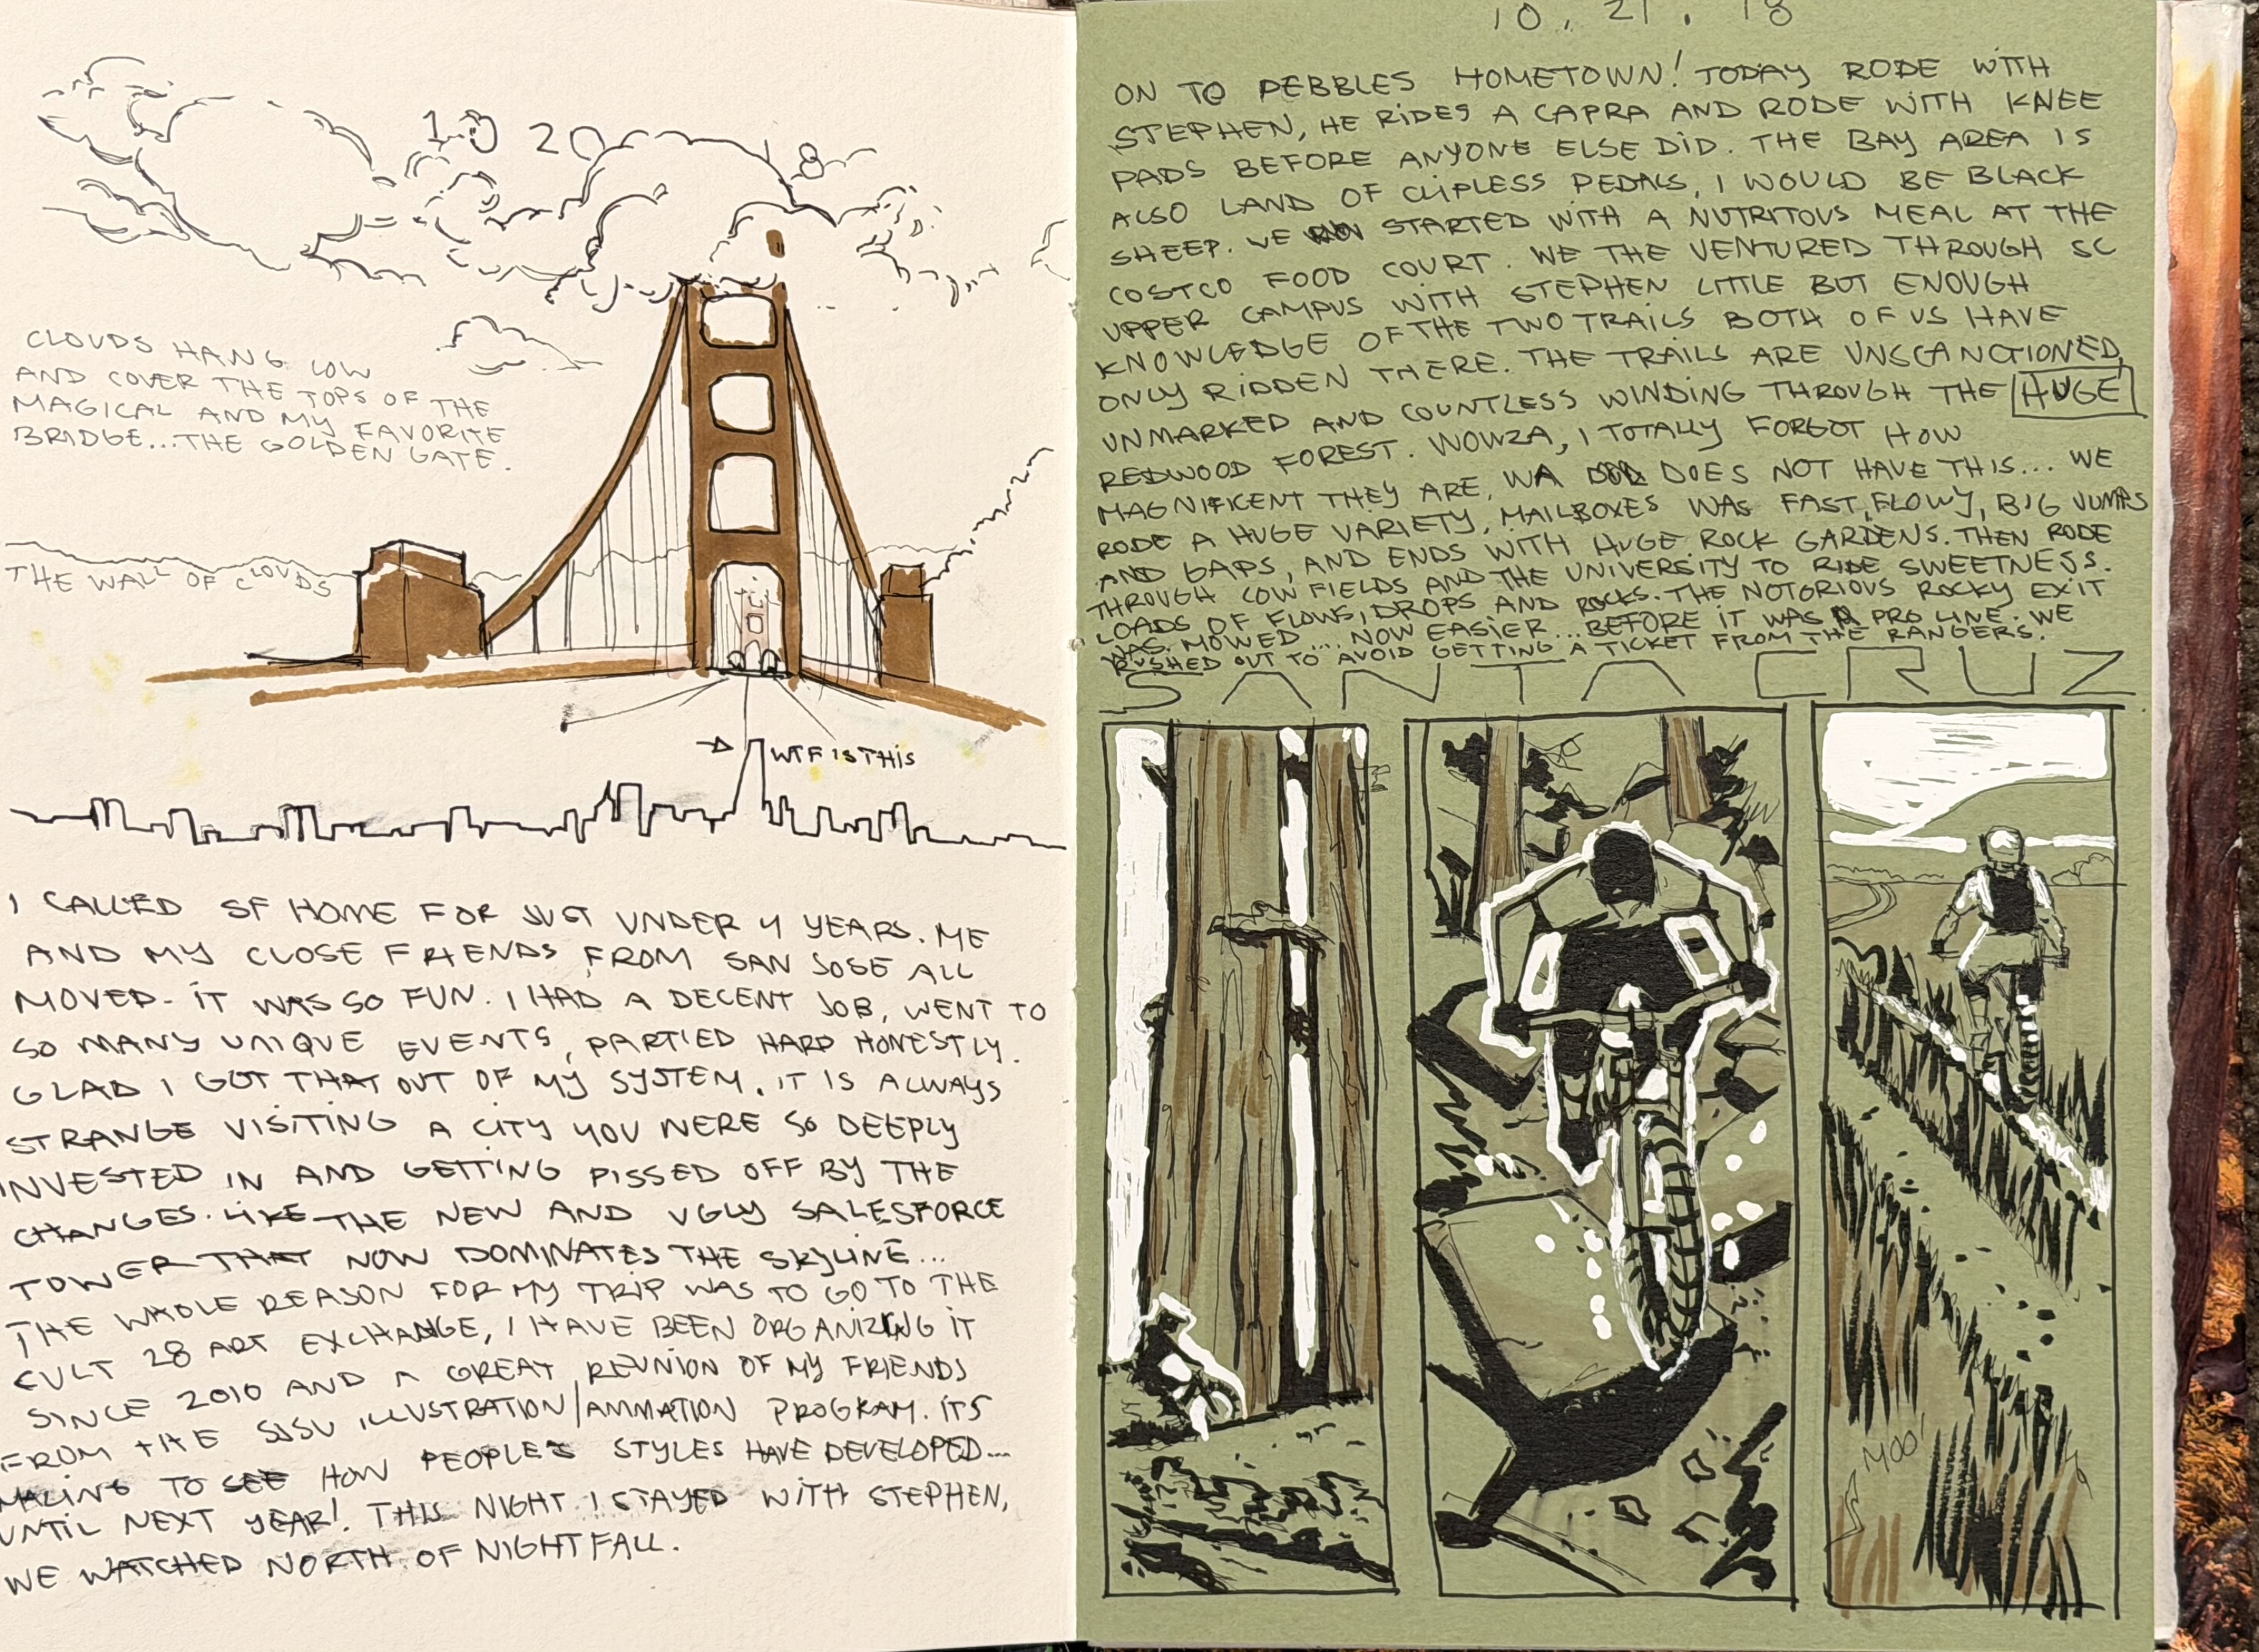 10 20 18
CLOUDS HANG LOW
AND COVER THE TOPS OF THE
MAGICAL AND MY FAVORITE
BRIDGE...THE GOLDEN GATE.
THE WALL OF CLOUDS
WTF IS THIS
I CALLED SF HOME FOR JUST UNDER 4 YEARS. ME
AND MY CLOSE FRIENDS FROM SAN JOSE ALL
MOVED - IT WAS SO FUN. I HAD A DECENT JOB, WENT TO
SO MANY UNIQUE EVENTS, PARTIED HARD HONESTLY.
GLAD I GOT THAT OUT OF MY SYSTEM. IT IS ALWAYS
STRANGE VISITING A CITY YOU WERE SO DEEPLY
INVESTED IN AND GETTING PISSED OFF BY THE
CHANGES. LIKE THE NEW AND UGLY SALESFORCE
TOWER THAT NOW DOMINATES THE SKYLINE...
THE WHOLE REASON FOR MY TRIP WAS TO GO TO THE
CULT 28 ART EXCHANGE, I HAVE BEEN ORGANIZING IT
SINCE 2010 AND A GREAT REUNION OF MY FRIENDS
FROM THE SJSU ILLUSTRATION/ANIMATION PROGRAM. ITS
TO SEE HOW PEOPLE'S STYLES HAVE DEVELOPED...
UNTIL NEXT YEAR! THIS NIGHT I STAYED WITH STEPHEN,
WE WATCHED NORTH OF NIGHTFALL.
10. 21. 18
ON TO PEBBLES HOMETOWN! TODAY RODE WITH
STEPHEN, HE RIDES A CAPRA AND RODE WITH KNEE
PADS BEFORE ANYONE ELSE DID. THE BAY AREA IS
ALSO LAND OF CLIPLESS PEDALS, I WOULD BE BLACK
SHEEP. WE STARTED WITH A NUTRITOUS MEAL AT THE
COSTCO FOOD COURT. WE THE VENTURED THROUGH SC
UPPER CAMPUS WITH STEPHEN LITTLE BUT ENOUGH
KNOWLEDGE OF THE TWO TRAILS BOTH OF US HAVE
ONLY RIDDEN THERE. THE TRAILS ARE UNSCANCTIONED,
UNMARKED AND COUNTLESS WINDING THROUGH THE HUGE
REDWOOD FOREST. WOWZA, I TOTALLY FORGOT HOW
MAGNIFICENT THEY ARE, WA DOES NOT HAVE THIS... WE
RODE A HUGE VARIETY, MAILBOXES WAS FAST, FLOWY, BIG JUMPS
AND GAPS, AND ENDS WITH HUGE ROCK GARDENS. THEN RODE
THROUGH COW FIELDS AND THE UNIVERSITY TO RIDE SWEETNESS.
LOADS OF FLOWS, DROPS AND ROCKS. THE NOTORIOUS ROCKY EXIT
WAS MOWED.... NOW EASIER... BEFORE IT WAS A PRO LINE. WE
RUSHED OUT TO AVOID GETTING A TICKET FROM THE RANGERS.
SANTA CRUZ
MOO!